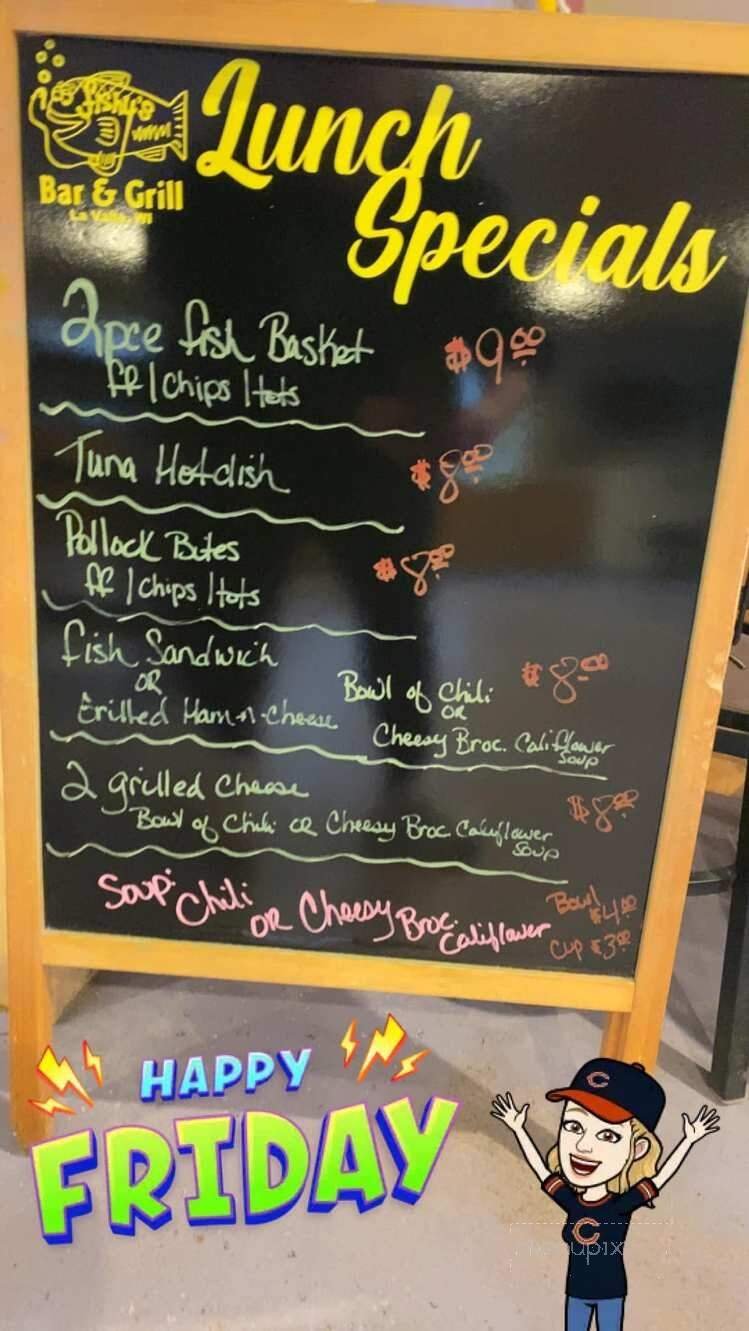 fishy's
Bar & Grill
La Valle, WI
Lunch
Specials
2pce fish Basket $9.00
ff / Chips / tots
Tuna Hotdish $8.00
Pollock Bites $8.00
ff / chips / tots
fish Sandwich
OR
Grilled Ham-n-Cheese
Bowl of Chili $8.00
OR
Cheesy Broc. Califlower
Soup
2 grilled Cheese $8.00
Bowl of Chili OR Cheesy Broc Califlower
Soup
Soup: Chili OR Cheesy Broc. Califlower
Bowl $4.00
Cup $3.00
HAPPY
FRIDAY
C
C